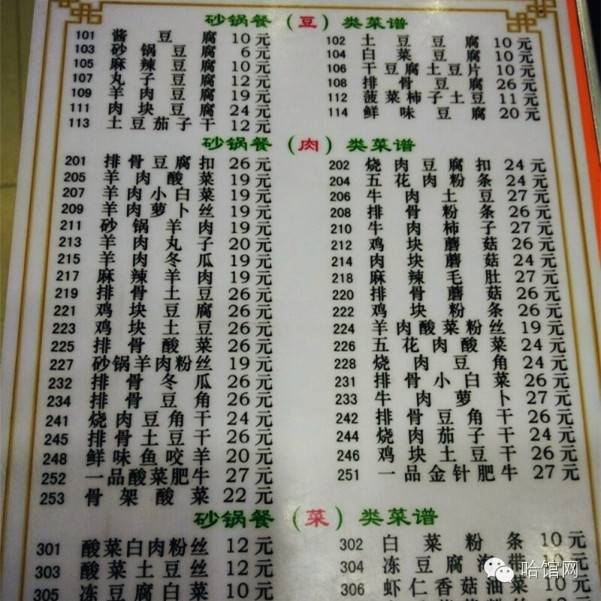 砂锅餐（豆）类菜谱
101 酱豆腐 10元
103 砂锅豆腐 6元
105 麻辣豆腐 10元
107 丸子豆腐 12元
109 羊肉豆腐 19元
111 肉块豆腐 24元
113 土豆茄子干 12元
102 土豆豆腐 10元
104 白菜豆腐 10元
106 干豆腐土豆片 10元
108 排骨豆腐 26元
112 菠菜柿子土豆 11元
114 鲜味豆腐 20元
砂锅餐（肉）类菜谱
201 排骨豆腐扣 26元
205 羊肉酸菜 19元
207 羊肉小白菜 19元
209 羊肉萝卜丝 19元
211 砂锅羊肉 19元
213 羊肉丸子 20元
215 羊肉冬瓜 19元
217 麻辣羊肉 19元
219 排骨土豆 26元
221 鸡块豆腐 26元
223 鸡块土豆 26元
225 排骨酸菜 26元
227 砂锅羊肉粉丝 19元
232 排骨冬瓜 26元
234 排骨豆角 26元
241 烧肉豆角干 24元
245 排骨土豆干 26元
248 鲜味鱼咬羊 20元
252 一品酸菜肥牛 27元
253 骨架酸菜 22元
202 烧肉豆腐扣 24元
204 五花肉粉条 24元
206 牛肉土豆 27元
208 排骨粉条 26元
210 牛肉柿子 27元
212 鸡块蘑菇 26元
214 肉块蘑菇 24元
218 麻辣毛肚 27元
220 排骨蘑菇 26元
222 鸡块粉条 26元
224 羊肉酸菜粉丝 19元
226 五花肉酸菜 24元
228 烧肉豆角 24元
231 排骨小白菜 26元
233 牛肉萝卜 27元
242 排骨豆角干 26元
244 烧肉茄子干 24元
246 鸡块土豆干 26元
251 一品金针肥牛 27元
砂锅餐（菜）类菜谱
301 酸菜白肉粉丝 12元
303 酸菜土豆丝 12元
305 冻豆腐白菜 10元
302 白菜粉条 10元
304 冻豆腐海带 10元
306 虾仁香菇油菜
哈馆网